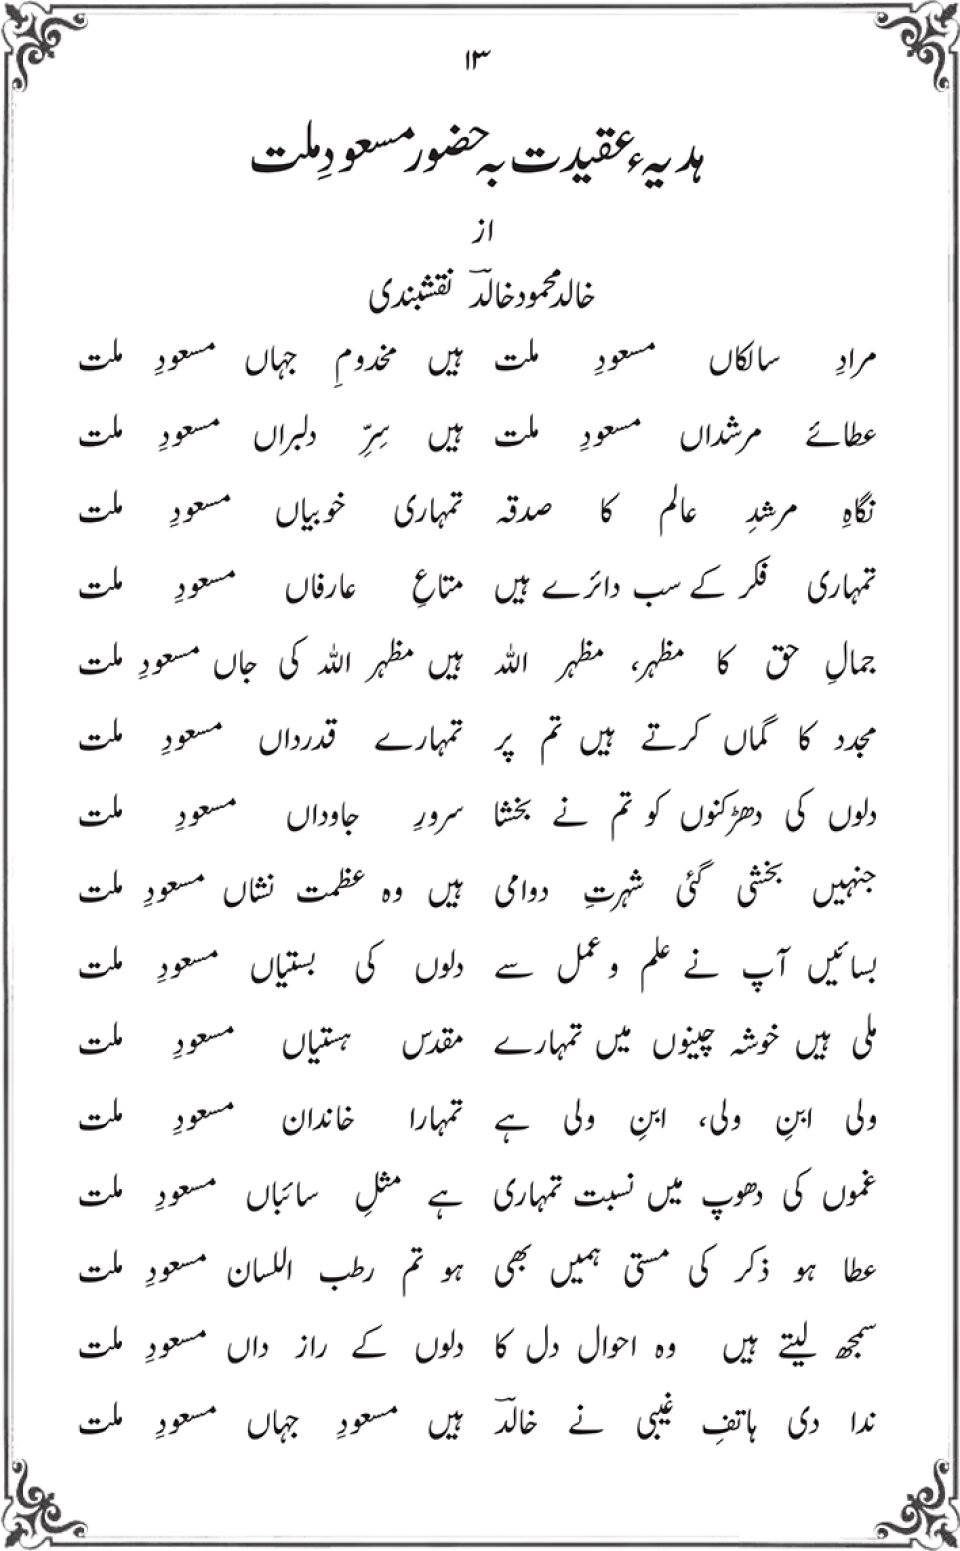 ۱۳
ہدیہء عقیدت بہ حضور مسعودِ ملت
از
خالد محمود خالدؔ نقشبندی
مرادِ سالکاں مسعودِ ملت ہیں مخدومِ جہاں مسعودِ ملت
عطائے مرشداں مسعودِ ملت ہیں سِرِّ دلبراں مسعودِ ملت
نگاہِ مرشدِ عالم کا صدقہ تمہاری خوبیاں مسعودِ ملت
تمہاری فکر کے سب دائرے ہیں متاعِ عارفاں مسعودِ ملت
جمالِ حق کا مظہر، مظہر اللہ ہیں مظہر اللہ کی جاں مسعودِ ملت
مجدد کا گماں کرتے ہیں تم پر تمہارے قدرداں مسعودِ ملت
دلوں کی دھڑکنوں کو تم نے بخشا سرورِ جاوداں مسعودِ ملت
جنہیں بخشی گئی شہرتِ دوامی ہیں وہ عظمت نشاں مسعودِ ملت
بسائیں آپ نے علم و عمل سے دلوں کی بستیاں مسعودِ ملت
ملی ہیں خوشہ چینوں میں تمہارے مقدس ہستیاں مسعودِ ملت
ولی ابنِ ولی، ابنِ ولی ہے تمہارا خاندان مسعودِ ملت
غموں کی دھوپ میں نسبت تمہاری ہے مثلِ سائباں مسعودِ ملت
عطا ہو ذکر کی مستی ہمیں بھی ہو تم رطب اللسان مسعودِ ملت
سمجھ لیتے ہیں وہ احوال دل کا دلوں کے راز داں مسعودِ ملت
ندا دی ہاتفِ غیبی نے خالدؔ ہیں مسعودِ جہاں مسعودِ ملت